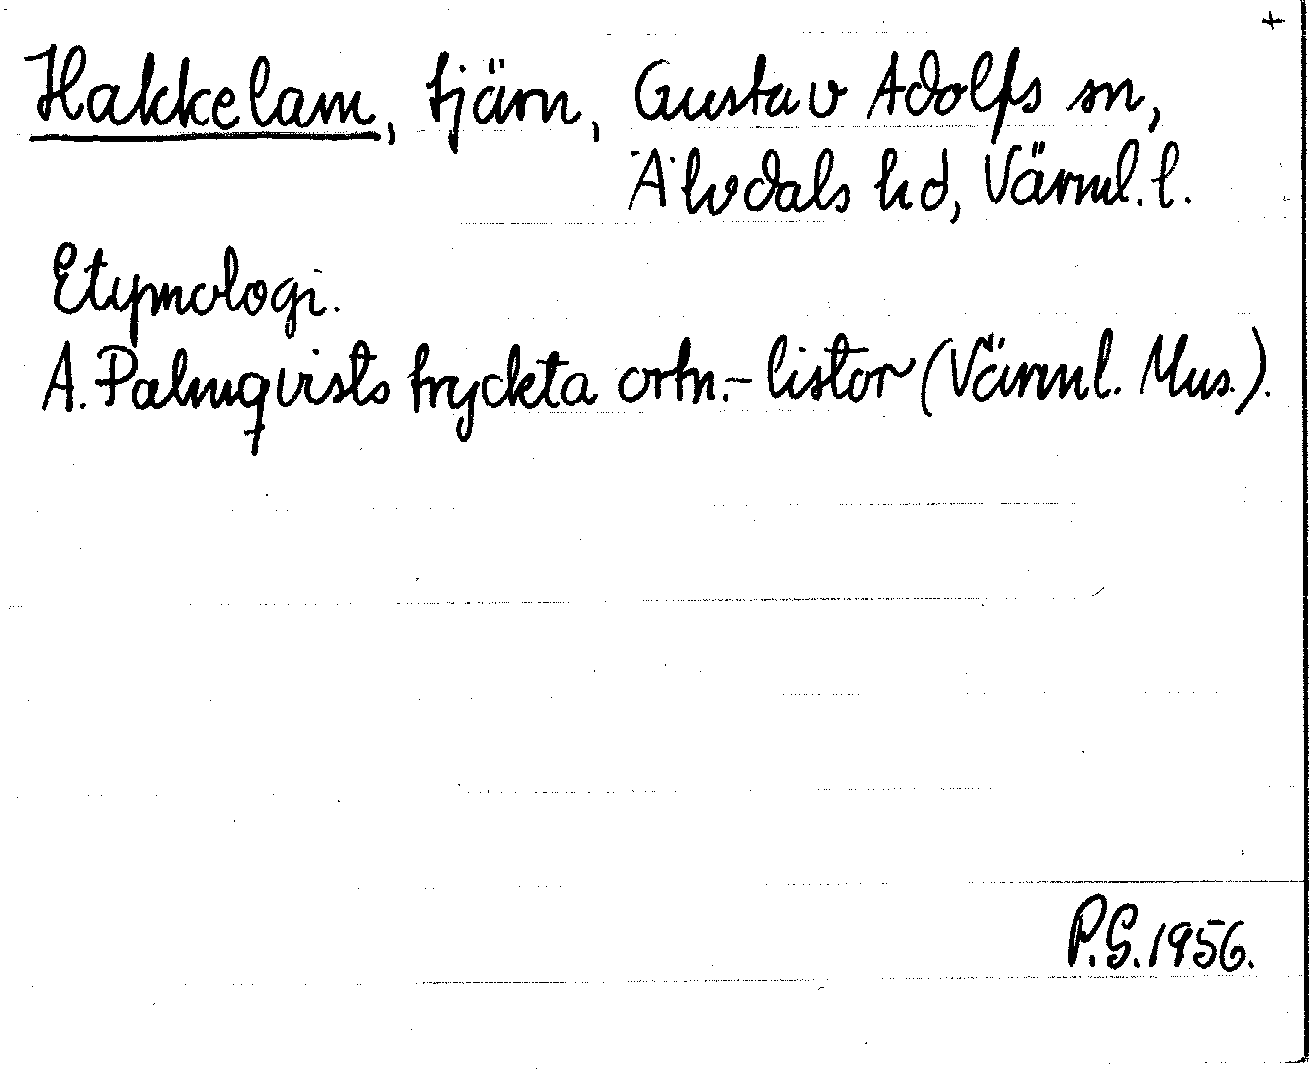 +
Hakkelam, tjärn, Gustav Adolfs sn,
Älvdals hd, Värml. l.
Etymologi.
A. Palmqvists tryckta ortn.-listor (Värml. Mus.).
P.G. 1956.